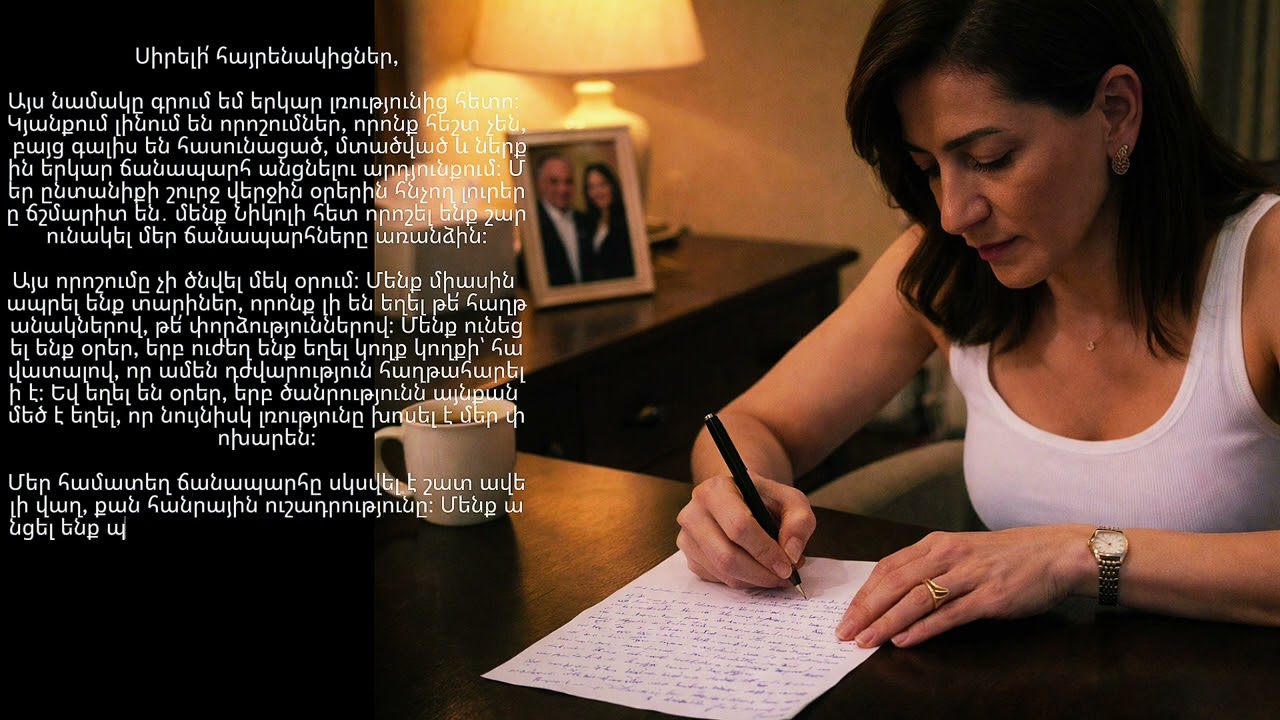 Սիրելի՛ հայրենակիցներ,
Այս նամակը գրում եմ երկար լռությունից հետո:
Կյանքում լինում են որոշումներ, որոնք հեշտ չեն,
բայց գալիս են հասունացած, մտածված և ներք
ին երկար ճանապարհ անցնելու արդյունքում: Մ
եր ընտանիքի շուրջ վերջին օրերին հնչող լուրեր
ը ճշմարիտ են. մենք Նիկոլի հետ որոշել ենք շար
ունակել մեր ճանապարհները առանձին:
Այս որոշումը չի ծնվել մեկ օրում: Մենք միասին
ապրել ենք տարիներ, որոնք լի են եղել թե՛ հաղթ
անակներով, թե՛ փորձություններով: Մենք ունեց
ել ենք օրեր, երբ ուժեղ ենք եղել կողք կողքի՝ հա
վատալով, որ ամեն դժվարություն հաղթահարել
ի է: Եվ եղել են օրեր, երբ ծանրությունն այնքան
մեծ է եղել, որ նույնիսկ լռությունը խոսել է մեր փ
ոխարեն:
Մեր համատեղ ճանապարհը սկսվել է շատ ավե
լի վաղ, քան հանրային ուշադրությունը: Մենք ա
նցել ենք պ